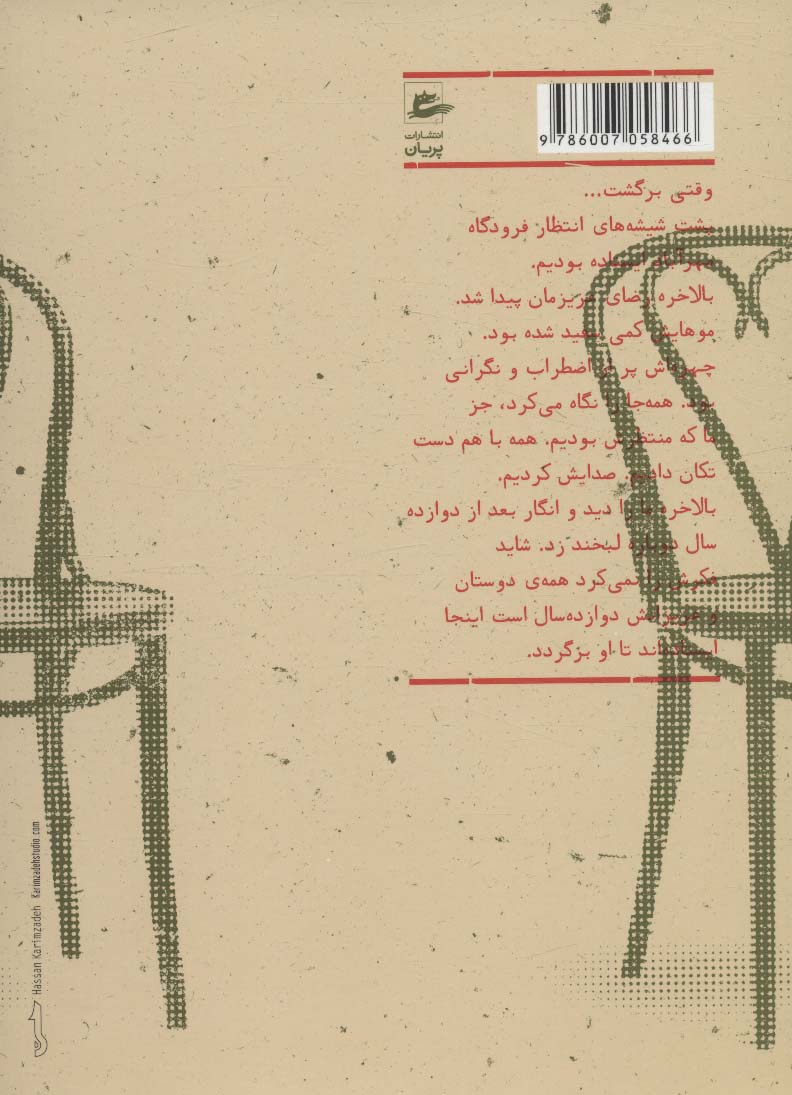 9 786007 058466
انتشارات
پریان
وقتی برگشت...
پشت شیشه‌های انتظار فرودگاه
مهرآباد ایستاده بودیم.
بالاخره رضای عزیزمان پیدا شد.
موهایش کمی سفید شده بود.
چهره‌اش پر از اضطراب و نگرانی
بود. همه‌جا را نگاه می‌کرد، جز
ما که منتظرش بودیم. همه با هم دست
تکان دادیم. صدایش کردیم.
بالاخره ما را دید و انگار بعد از دوازده
سال دوباره لبخند زد. شاید
فکرش را نمی‌کرد همه‌ی دوستان
و عزیزانش دوازده‌سال است اینجا
ایستاده‌اند تا او برگردد.
Hassan Karimzadeh Karimzadehstudio.com